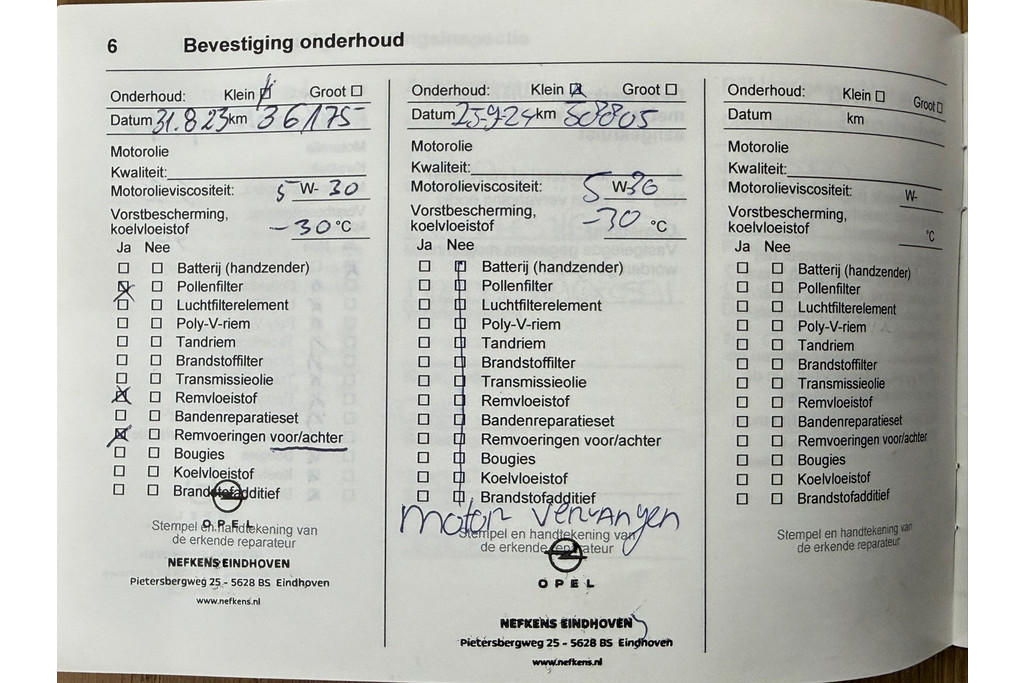 6 Bevestiging onderhoud
Onderhoud: Klein Groot
Datum 31.8.23 km 36175
Motorolie
Kwaliteit:
Motorolieviscositeit: 5 W- 30
Vorstbescherming,
koelvloeistof -30 °C
Ja Nee
Batterij (handzender)
Pollenfilter
Luchtfilterelement
Poly-V-riem
Tandriem
Brandstoffilter
Transmissieolie
Remvloeistof
Bandenreparatieset
Remvoeringen voor/achter
Bougies
Koelvloeistof
Brandstofadditief
OPEL
Stempel en handtekening van
de erkende reparateur
NEFKENS EINDHOVEN
Pietersbergweg 25 - 5628 BS Eindhoven
www.nefkens.nl
Onderhoud: Klein Groot
Datum 25-9-24 km 50805
Motorolie
Kwaliteit:
Motorolieviscositeit: 5 W-30
Vorstbescherming,
koelvloeistof -30 °C
Ja Nee
Batterij (handzender)
Pollenfilter
Luchtfilterelement
Poly-V-riem
Tandriem
Brandstoffilter
Transmissieolie
Remvloeistof
Bandenreparatieset
Remvoeringen voor/achter
Bougies
Koelvloeistof
Brandstofadditief
motor vervangen
Stempel en handtekening van
de erkende reparateur
OPEL
NEFKENS EINDHOVEN
Pietersbergweg 25 - 5628 BS Eindhoven
www.nefkens.nl
Onderhoud: Klein Groot
Datum km
Motorolie
Kwaliteit:
Motorolieviscositeit: W-
Vorstbescherming,
koelvloeistof °C
Ja Nee
Batterij (handzender)
Pollenfilter
Luchtfilterelement
Poly-V-riem
Tandriem
Brandstoffilter
Transmissieolie
Remvloeistof
Bandenreparatieset
Remvoeringen voor/achter
Bougies
Koelvloeistof
Brandstofadditief
Stempel en handtekening van
de erkende reparateur